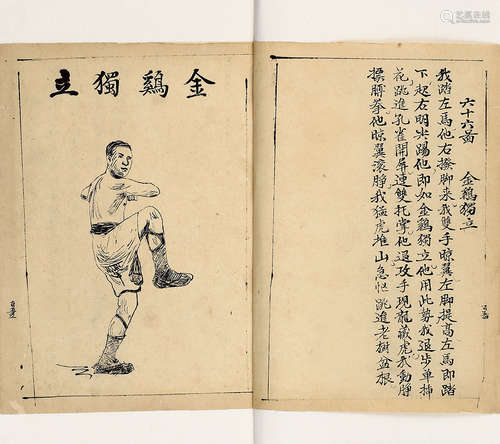 金鷄獨立
六十六黃 金鷄獨立
我踏左馬他右撩脚來我雙手晾翼左脚提高左馬即踏
下起右明尖踢他即如金鷄獨立他用此勢我退步單揷
花跳進孔雀開屏連雙托掌他退攻手現龍藏虎我動脖
撩膊拳他晾翼滾脖我猛虎推山急忙跳進老樹盆根